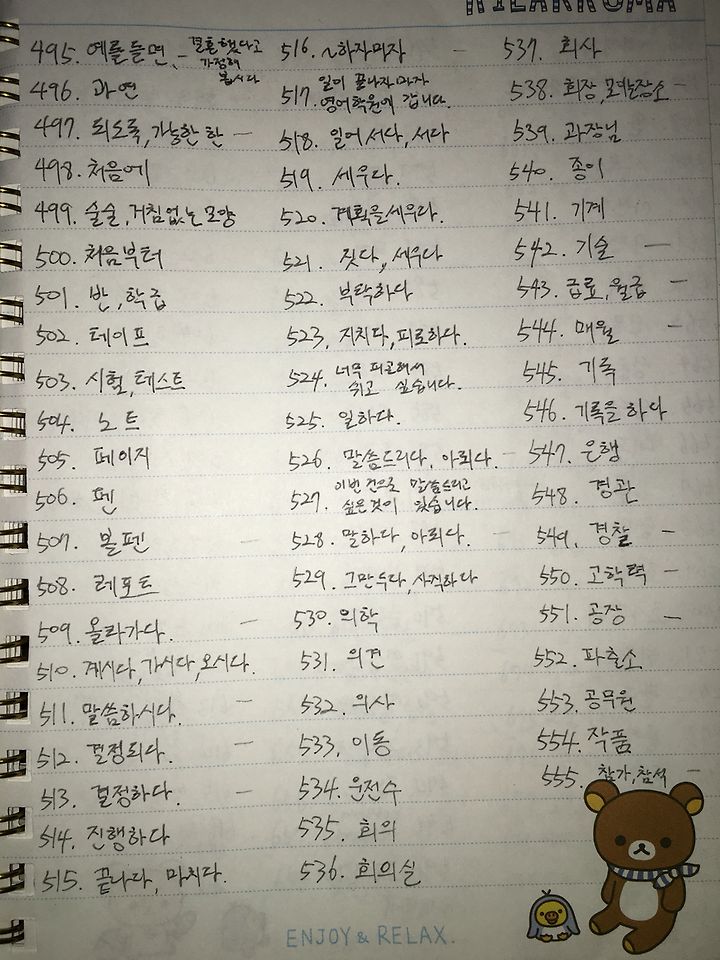 RILAKKUMA
495. 예를들면, - 결혼했다고
가정해
봅시다
496. 과연
497. 되도록, 가능한 한 -
498. 처음에
499. 술술, 거침없는 모양
500. 처음부터
501. 반, 학급
502. 테이프
503. 시험, 테스트
504. 노트
505. 페이지
506. 펜
507. 볼펜 -
508. 레포트
509. 올라가다. -
510. 계시다, 가시다, 오시다.
511. 말씀하시다. -
512. 결정되다. -
513. 결정하다. -
514. 진행하다
515. 끝나다, 마치다.
516. ~하자마자 -
517. 일이 끝나자마자
영어학원에 갑니다.
518. 일어서다, 서다
519. 세우다.
520. 계획을세우다.
521. 짓다, 세우다
522. 부탁하다
523. 지치다, 피로하다.
524. 너무 피곤해서
쉬고 싶습니다.
525. 일하다.
526. 말씀드리다, 아뢰다. -
527. 이번 건으로 말씀드리고
싶은것이 있습니다.
528. 말하다, 아뢰다. -
529. 그만두다, 사직하다
530. 의학
531. 의견
532. 의사
533. 이동
534. 운전수
535. 회의
536. 회의실
537. 회사
538. 회장, 모이는장소 -
539. 과장님
540. 종이
541. 기계
542. 기술 -
543. 급료, 월급 -
544. 매월 -
545. 기록
546. 기록을 하다
547. 은행
548. 경관
549. 경찰 -
550. 고학력 -
551. 공장 -
552. 파출소
553. 공무원
554. 작품
555. 참가, 참석 -
ENJOY & RELAX.